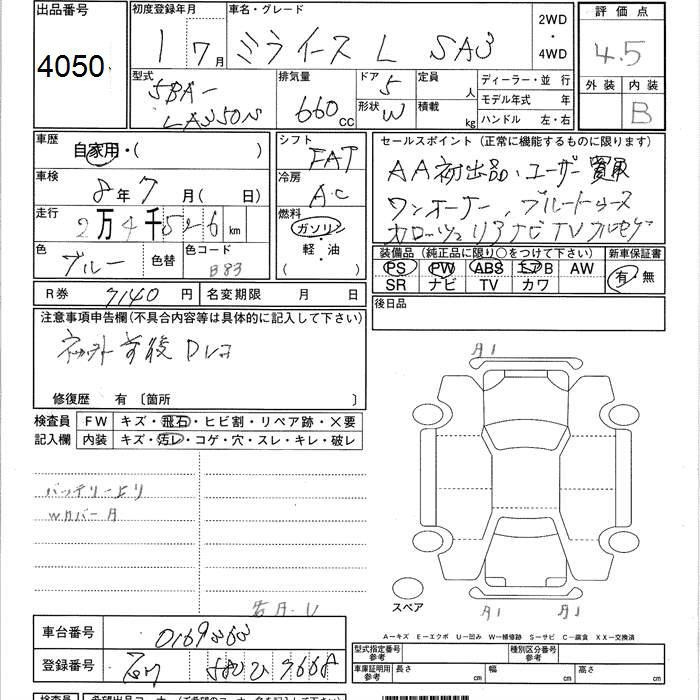 出品番号 初度登録年月 車名・グレード 2WD 評価点
4050 1 7月 ミライース L SA3 ・ 4.5
4WD
型式 排気量 ドア 定員 ディーラー・並 行 外装 内装
5BA- 660 CC 5 人 モデル年式 年 B
LA350S 形状 W 積載 kg ハンドル 左・右
車歴 シフト セールスポイント (正常に機能するものに限ります)
自家用・( ) FAT AA初出品、ユーザー買取
車検 8年7月( 日) 冷房 AC ワンオーナー、ブルートゥース
走行 2万4千526km 燃料 ナビ TV
色 ブルー 色替 色コード B83 ガソリン・軽・油 ( )
装備品 (純正品に限り○をつけて下さい) 新車保証書
PS PW ABS エアB AW 有・無
SR ナビ TV カワ
R券 7140 円 名変期限 月 日 後日品
注意事項申告欄(不具合内容等は具体的に記入して下さい)
前後
修復歴 有 〔箇所 〕
検査員 FW キズ・飛石・ヒビ割・リペア跡・×要
記入欄 内装 キズ・汚レ・コゲ・穴・スレ・キレ・破レ
A1
バッテリー上り
Wカバー
スペア
A1 A1
A-キズ E-エクボ U-凹み W-補修跡 S-サビ C-腐食 XX-交換済
車台番号
登録番号 580
型式指定番号 参考 種別区分番号 参考
車庫証明用 参考 長さ cm 幅 cm 高さ cm
検査員